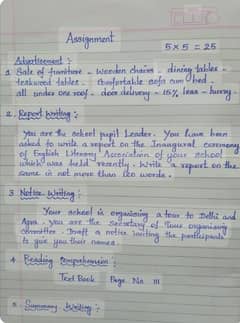 Assignment
5 x 5 = 25
Advertisement :
1. Sale of furniture - wooden chairs - dining tables -
teakwood tables - Comfortable sofa cum bed -
all under one roof - door delivery - 15% less - hurry.
2. Report Writing :
You are the school pupil Leader. You have been
asked to write a report on the Inaugural ceremony
of English Literary Association of your school
which was held recently. Write a report on the
same in not more than 100 words.
3 Notice Writing :
Your school is organising a tour to Delhi and
Agra. You are the Secretary of Tour organising
committee. Draft a notice inviting the participants
to give you their names.
4 Reading Comprehension :
Text Book Page No 111
5 Summary Writing :